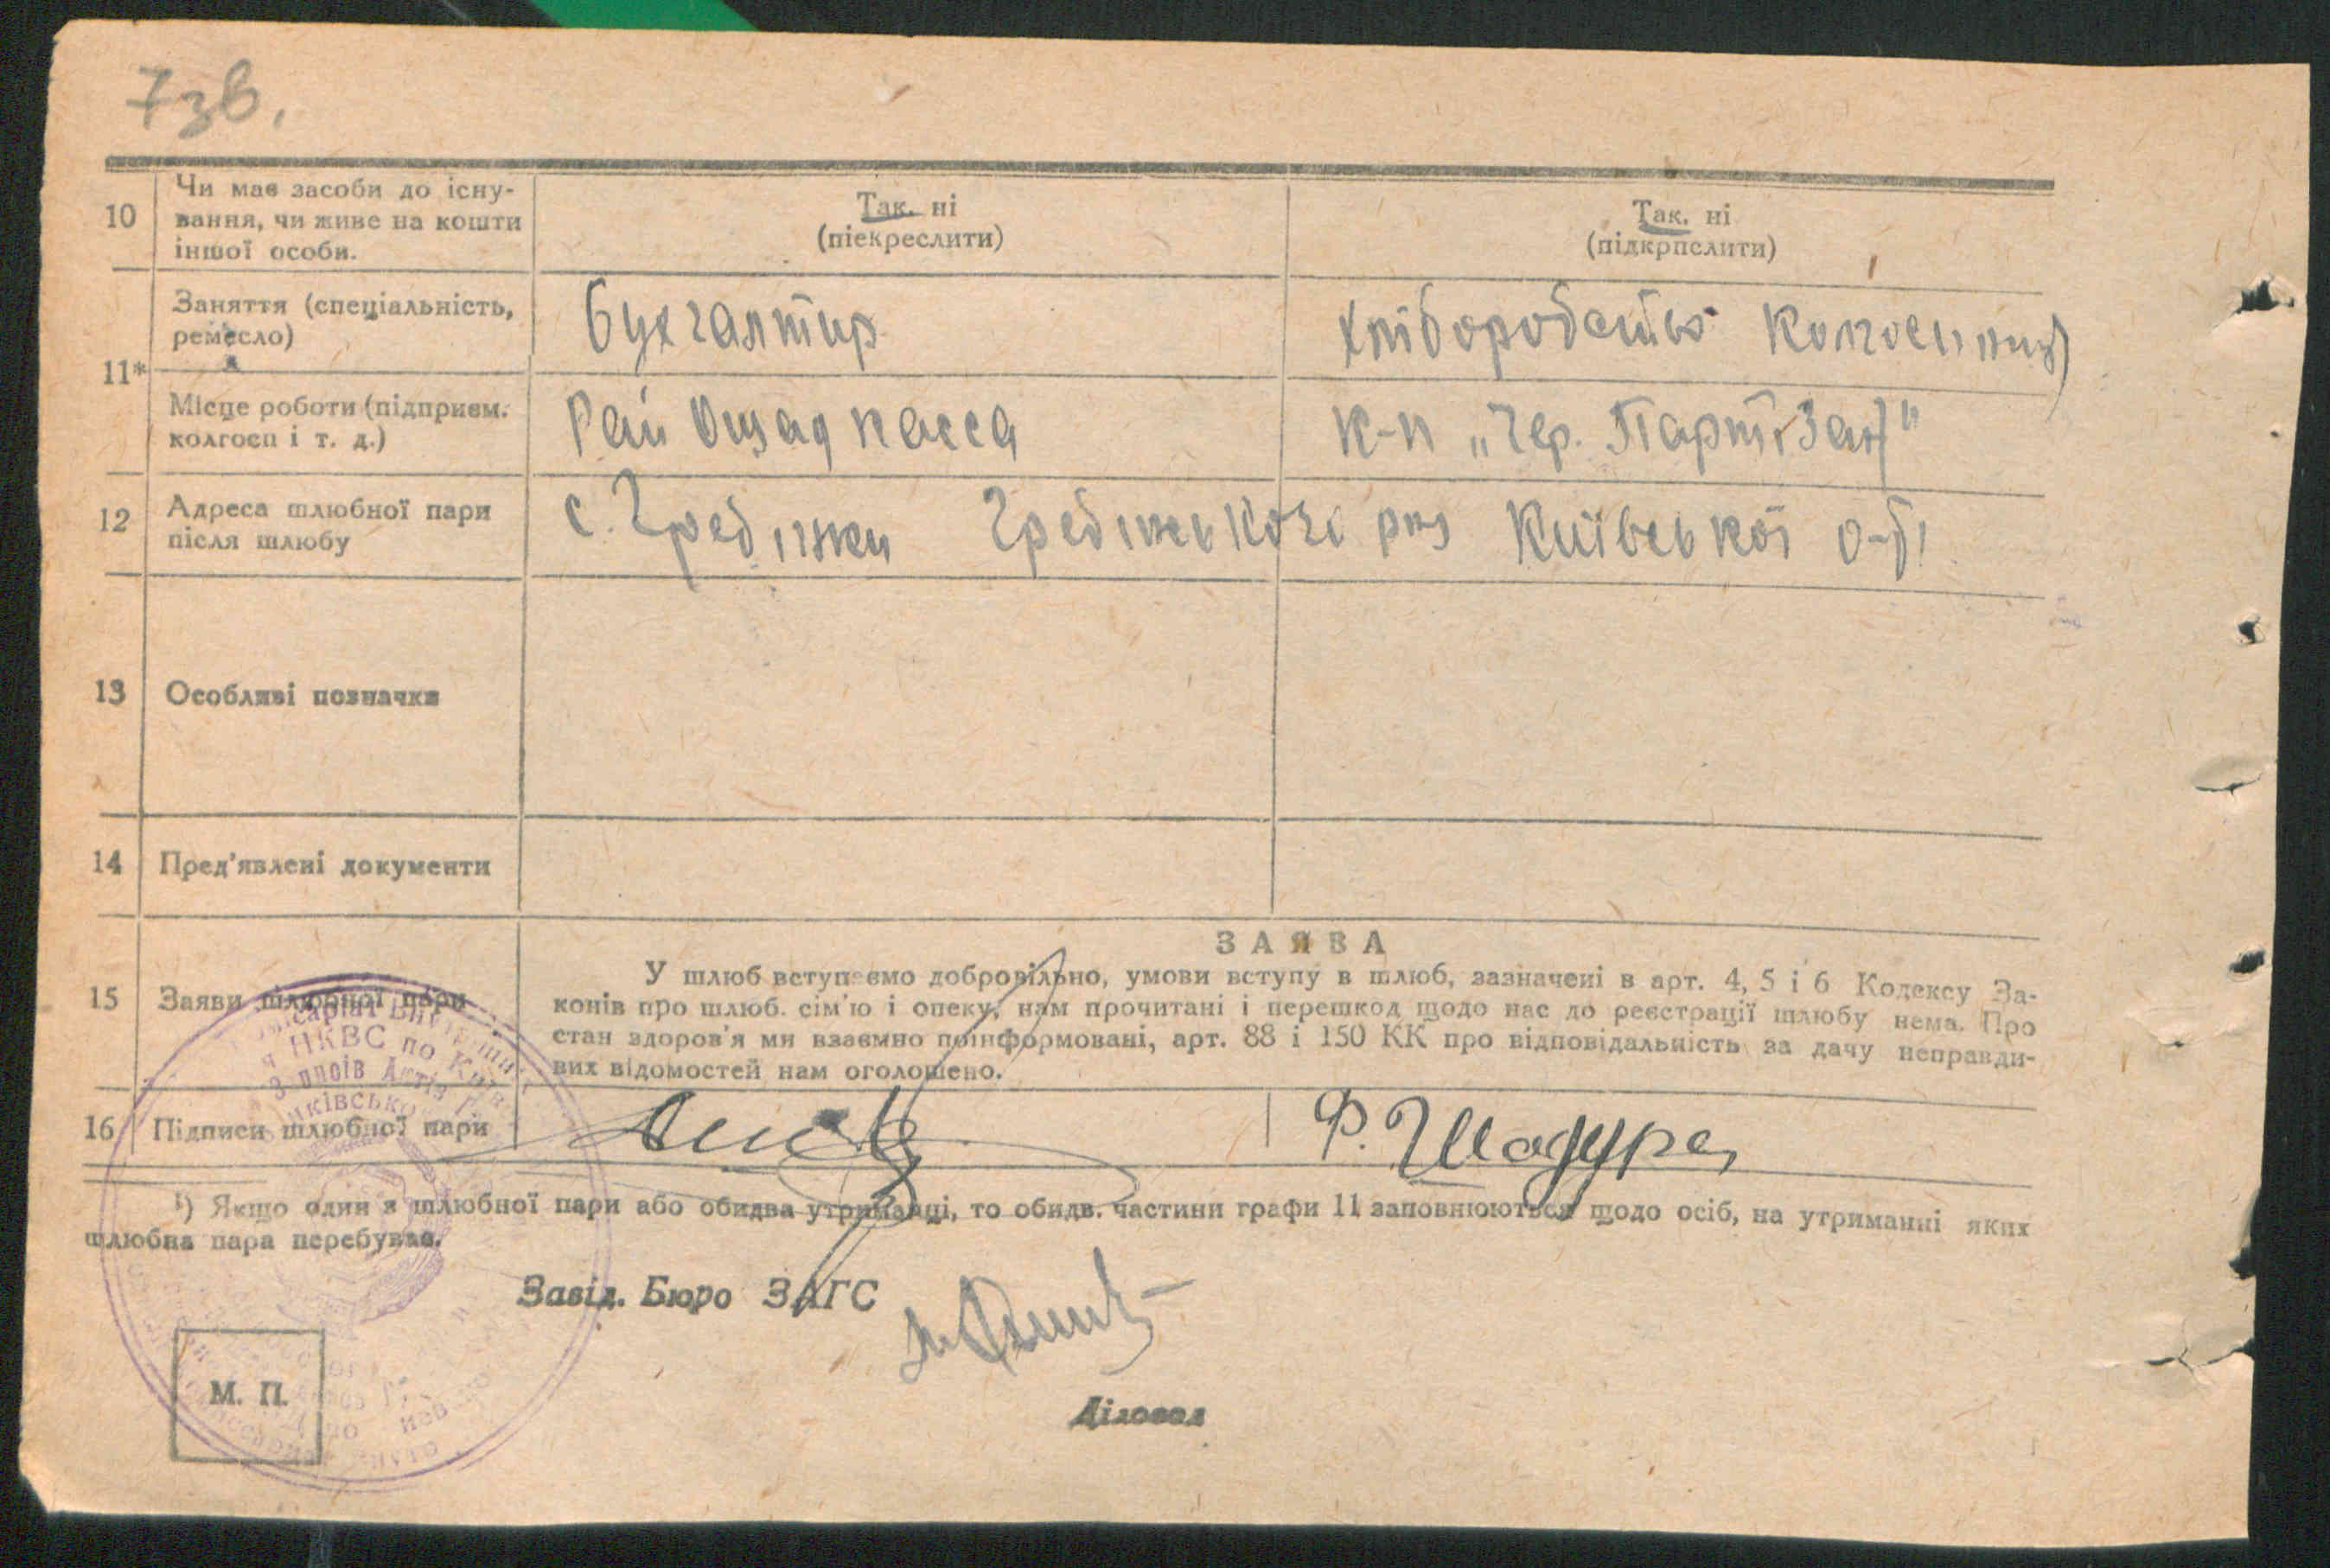 7зв.
10
Чи має засоби до існу-
вання, чи живе на кошти
іншої особи.
Так. ні
(піекреслити)
Так. ні
(підкрпслити)
11*
Заняття (спеціальність,
ремесло)
Бухгалтир
Хліборобство
Місце роботи (підприєм.
колгосп і т. д.)
Рай Ощад касса
к-п „Чер. Партізан"
12
Адреса шлюбної пари
після шлюбу
с. Гребінки Гребінького р-ну Київської о-ті
13
Особливі позначки
14
Пред'явлені документи
15
Заяви шлюбної пари
ЗАЯВА
У шлюб вступаємо добровільно, умови вступу в шлюб, зазначені в арт. 4, 5 і 6 Кодексу За-
конів про шлюб. сім'ю і опеку, нам прочитані і перешкод щодо нас до реєстрації шлюбу нема. Про
стан здоров'я ми взаємно поінформовані, арт. 88 і 150 КК про відповідальність за дачу неправди-
вих відомостей нам оголошено.
16
Підписи шлюбної пари
Ф. Шадура
¹) Якщо один з шлюбної пари або обидва утриманці, то обидв. частини графи 11 заповнюються щодо осіб, на утриманні яких
шлюбна пара перебуває.
Завід. Бюро ЗАГС
Діловод
М. П.
НКВС по